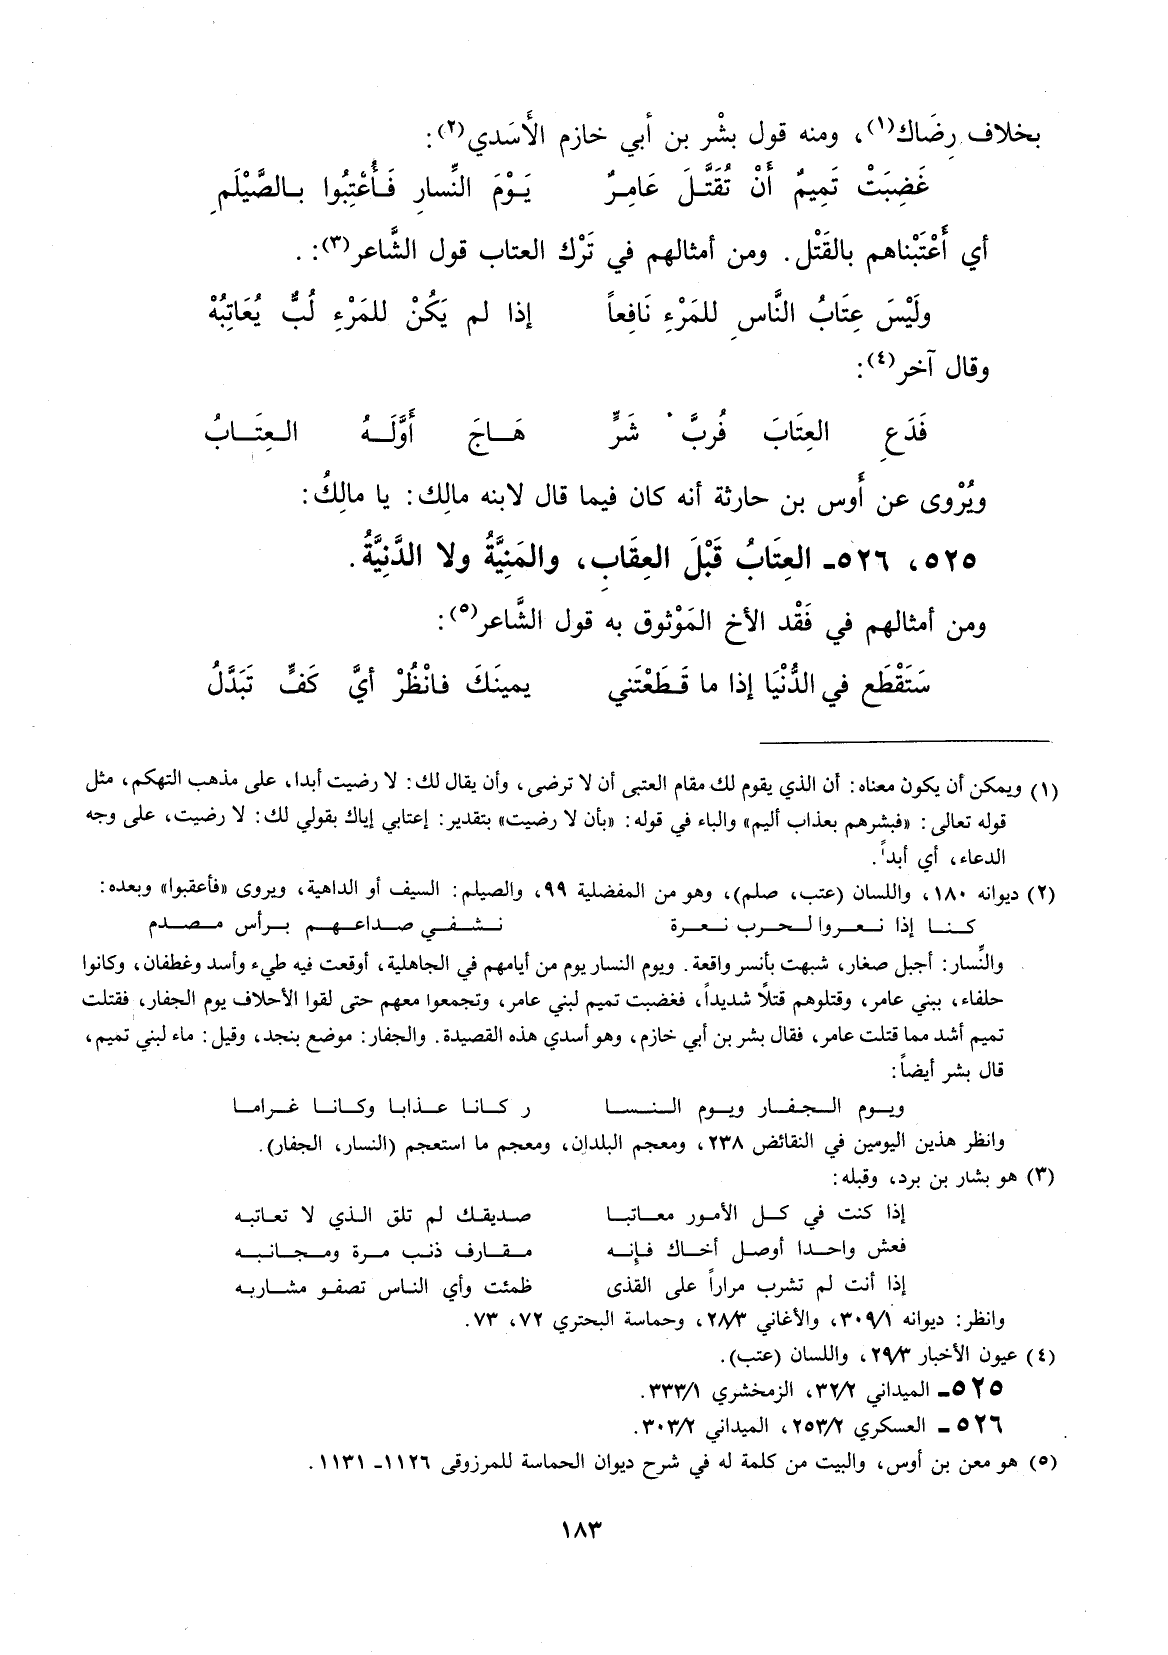 بخلاف رِضَاك(١)، ومنه قول بشْر بن أبي خازم الأَسَدي(٢):
غَضِبَتْ تَمِيمٌ أَنْ تُقَتَّلَ عَامِرٌ يَوْمَ النِّسارِ فَأُعْتِبُوا بالصَّيْلَمِ
أي أَعْتَبْناهم بالقَتْل. ومن أمثالهم في تَرْك العتاب قول الشَّاعر(٣): .
ولَيْسَ عِتَابُ النَّاسِ للمَرْءِ نَافِعاً إذا لم يَكُنْ للمَرْءِ لُبٌّ يُعَاتِبُهْ
وقال آخر(٤):
فَدَعِ العِتَابَ فُربَّ شَرٍّ هَاجَ أَوَّلَهُ العِتَابُ
ويُرْوى عن أَوس بن حارثة أنه كان فيما قال لابنه مالِك: يا مالِكُ:
٥٢٥، ٥٢٦ـ العِتَابُ قَبْلَ العِقَابِ، والمَنِيَّةُ ولا الدَّنِيَّةُ.
ومن أمثالهم في فَقْد الأخ المَوْثوق به قول الشَّاعر(٥):
سَتَقْطَع في الدُّنْيَا إذا ما قَطَعْتَني يمينَكَ فانْظُرْ أيَّ كَفٍّ تَبَدَّلُ
(١) ويمكن أن يكون معناه: أن الذي يقوم لك مقام العتبى أن لا ترضى، وأن يقال لك: لا رضيت أبدا، على مذهب التهكم، مثل
قوله تعالى: «فبشرهم بعذاب أليم» والباء في قوله: «بأن لا رضيت» بتقدير: إعتابي إياك بقولي لك: لا رضيت، على وجه
الدعاء، أي أبداً.
(٢) ديوانه ١٨٠، واللسان (عتب، صلم)، وهو من المفضلية ٩٩، والصيلم: السيف أو الداهية، ويروى «فأعقبوا» وبعده:
كنا إذا نعروا لحرب نعرة نشفي صداعهم برأس مصدم
والنِّسار: أجبل صغار، شبهت بأنسر واقعة. ويوم النسار يوم من أيامهم في الجاهلية، أوقعت فيه طيء وأسد وغطفان، وكانوا
حلفاء، ببني عامر، وقتلوهم قتلاً شديداً، فغضبت تميم لبني عامر، وتجمعوا معهم حتى لقوا الأحلاف يوم الجفار، فقتلت
تميم أشد مما قتلت عامر، فقال بشر بن أبي خازم، وهو أسدي هذه القصيدة. والجفار: موضع بنجد، وقيل: ماء لبني تميم،
قال بشر أيضاً:
ويوم الجفار ويوم النسا ر كانا عذابا وكانا غراما
وانظر هذين اليومين في النقائض ٢٣٨، ومعجم البلدان، ومعجم ما استعجم (النسار، الجفار).
(٣) هو بشار بن برد، وقبله:
إذا كنت في كل الأمور معاتبا صديقك لم تلق الذي لا تعاتبه
فعش واحدا أوصل أخاك فإنه مقارف ذنب مرة ومجانبه
إذا أنت لم تشرب مراراً على القذى ظمئت وأي الناس تصفو مشاربه
وانظر: ديوانه ٣٠٩/١، والأغاني ٢٨/٣، وحماسة البحتري ٧٢، ٧٣.
(٤) عيون الأخبار ٢٩/٣، واللسان (عتب).
٥٢٥ـ الميداني ٣٢/٢، الزمخشري ٣٣٣/١.
٥٢٦ ـ العسكري ٢٥٣/٢، الميداني ٣٠٣/٢.
(٥) هو معن بن أوس، والبيت من كلمة له في شرح ديوان الحماسة للمرزوقي ١١٢٦ـ ١١٣١.
١٨٣